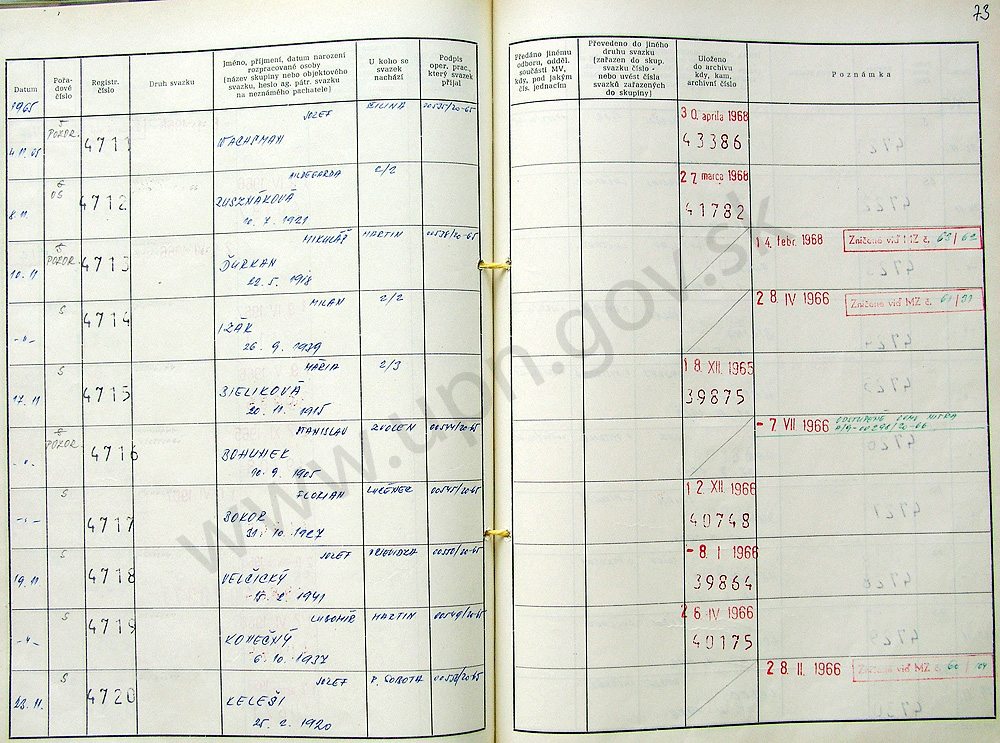 73
Datum
Pořa-
dové
číslo
Registr.
číslo
Druh svazku
Jméno, příjmení, datum narození
rozpracované osoby
[název skupiny nebo objektového
svazku, heslo ag. pátr. svazku
na neznámého pachatele]
U koho se
svazek
nachází
Podpis
oper. prac.,
který svazek
přijal
Předáno jinému
odboru, odděl.
součásti MV,
kdy, pod jakým
čís. jednacím
Převedeno do jiného
druhu svazku
[zařazen do skup.
svazku číslo -
nebo uvést čísla
svazků zařazených
do skupiny]
Uloženo
do archivu
kdy, kam,
archivní číslo
Poznámka
1965
4.11.65 POZOR. 4711 JOZEF ŽILINA 00535/20-65 30. apríla 1968
WACHSMAN 43386
8.11. OS 4712 HILDEGARDA 2/2 27 marca 1968
ZUSZNÁKOVÁ 41782
10. 7. 1921
10.11 POZOR. 4713 MIKULÁŠ MARTIN 00538/20-65 14. febr. 1968 Zničené viď MZ č. 68/62
ĎURKAN
22. 5. 1918
-"- S 4714 MILAN 2/2 28. IV 1966 Zničené viď MZ č. 61/31
IŽÁK
26. 9. 1939
17.11 S 4715 MÁRIA 2/3 18. XII. 1965
BIELIKOVÁ 39875
20. 11. 1915
-"- POZOR. 4716 STANISLAV ZVOLEN 00544/20-65 -7 VII 1966 ODSTÚPENÉ NITRA
BOHUNEK
10. 9. 1905
-"- S 4717 FLORIAN LUČENEC 00545/20-65 12. XII. 1966
BOKOR 40748
31. 10. 1927
19.11 S 4718 JOZEF PRIEVIDZA 00550/20-65 -8. I 1966
VELČICKÝ 39864
15. 2. 1941
-"- S 4719 ĽUBOMÍR MARTIN 00549/20-65 26 IV 1966
KONEČNÝ 40175
6. 10. 1937
23.11. S 4720 JOZEF R. SOBOTA 28. II. 1966 Zničené viď MZ č. 60/104
KELEŠI
25. 2. 1920
www.upn.gov.sk